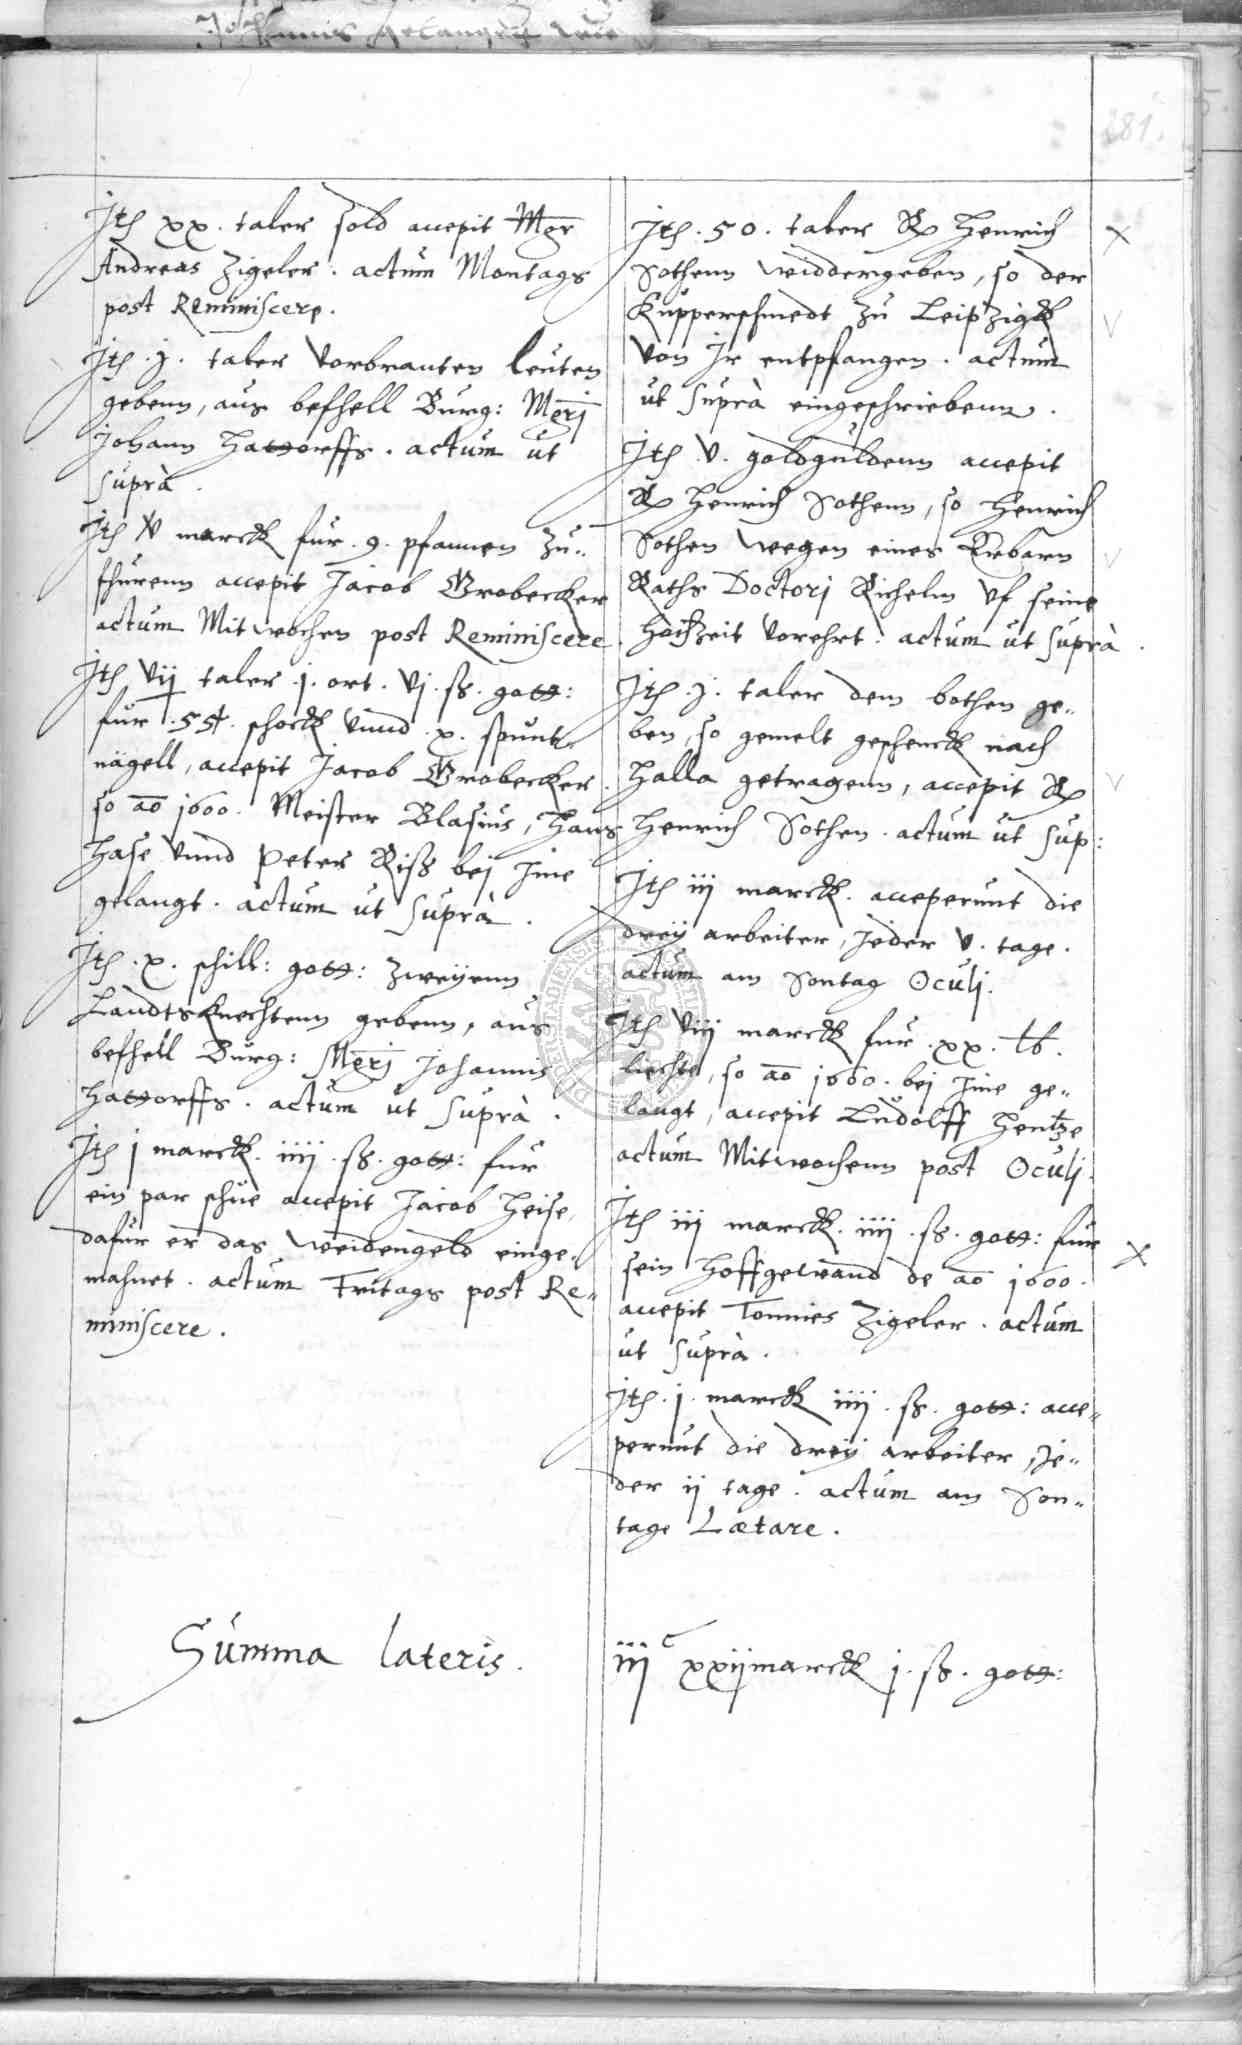 281.
Jtē xx. taler sold accepit Mgr̄
Andreas Zigeler. actum Montags
post Reminiscere.
Jtē .j. taler vorbranten leuten
gebenn, aus befhell Burg: Mgrj̄
Johann Hattorffs. actum ut
suprà.
Jtē V marck fur .9. pfannen zu„
fhurenn accepit Jacob Grobecker
actum Mitwochen post Reminiscere.
Jtē vij taler .j. ort. vj. ß. gott:
fur .55. schock vnnd .x. spunt
nägell, accepit Jacob Grobecker.
so ao 1600. Meister Blasius, Hans
Hase vnnd Peter Riß bej Jme
gelangt. actum ut suprà.
Jtē .x. schill: gott: zweÿenn
Landtsknechtenn gebenn, aus
befhell Burg: Mgrj̄ Johannis
Hattorffs. actum ut suprà.
Jtē j marck. iiij. ß. gott: fur
ein par schue accepit Jacob Heise,
dafur er das weidengeld einge„
mahnet. actum Fritags post Re„
miniscere.
Jtē .50. taler R Henrich
Sothenn widdergeben, so der
Kupperschmedt zu Leipzigk
von Jr entpfangen. actum
ut suprà eingeschriebenn.
Jtē V. goldguldenn accepit
R Henrich Sothenn, so Henrich
Sothen wegen eines Erbarn
Raths Doctorj Richelm vf seine
Hochzeit vorehrt. actum ut suprà.
Jtē .j. taler dem bothen ge„
ben, so gemelt geschenck nach
Halla getragenn, accepit R
Henrich Sothen. actum ut sup:
Jtē iij marck. acceperunt die
dreÿ arbeiter, jeder V. tage.
actum am Sontag Oculj.
Jtē viij marck fur .xx. lb.
liechte, so ao 1600. bej Jme ge„
langt, accepit Ludolff Hentze
actum Mitwochenn post Oculj.
Jtē iij marck. iiij. ß. gott: fur
sein Hoffgewand de ao 1600.
accepit Tonnies Zigeler. actum
ut suprà.
Jtē .j. marck iiij. ß. gott: acce„
perunt die dreÿ arbeiter, je„
der ij tage. actum am Son„
tage Lætare.
Summa lateris. iijc xxij marck j. ß. gott: